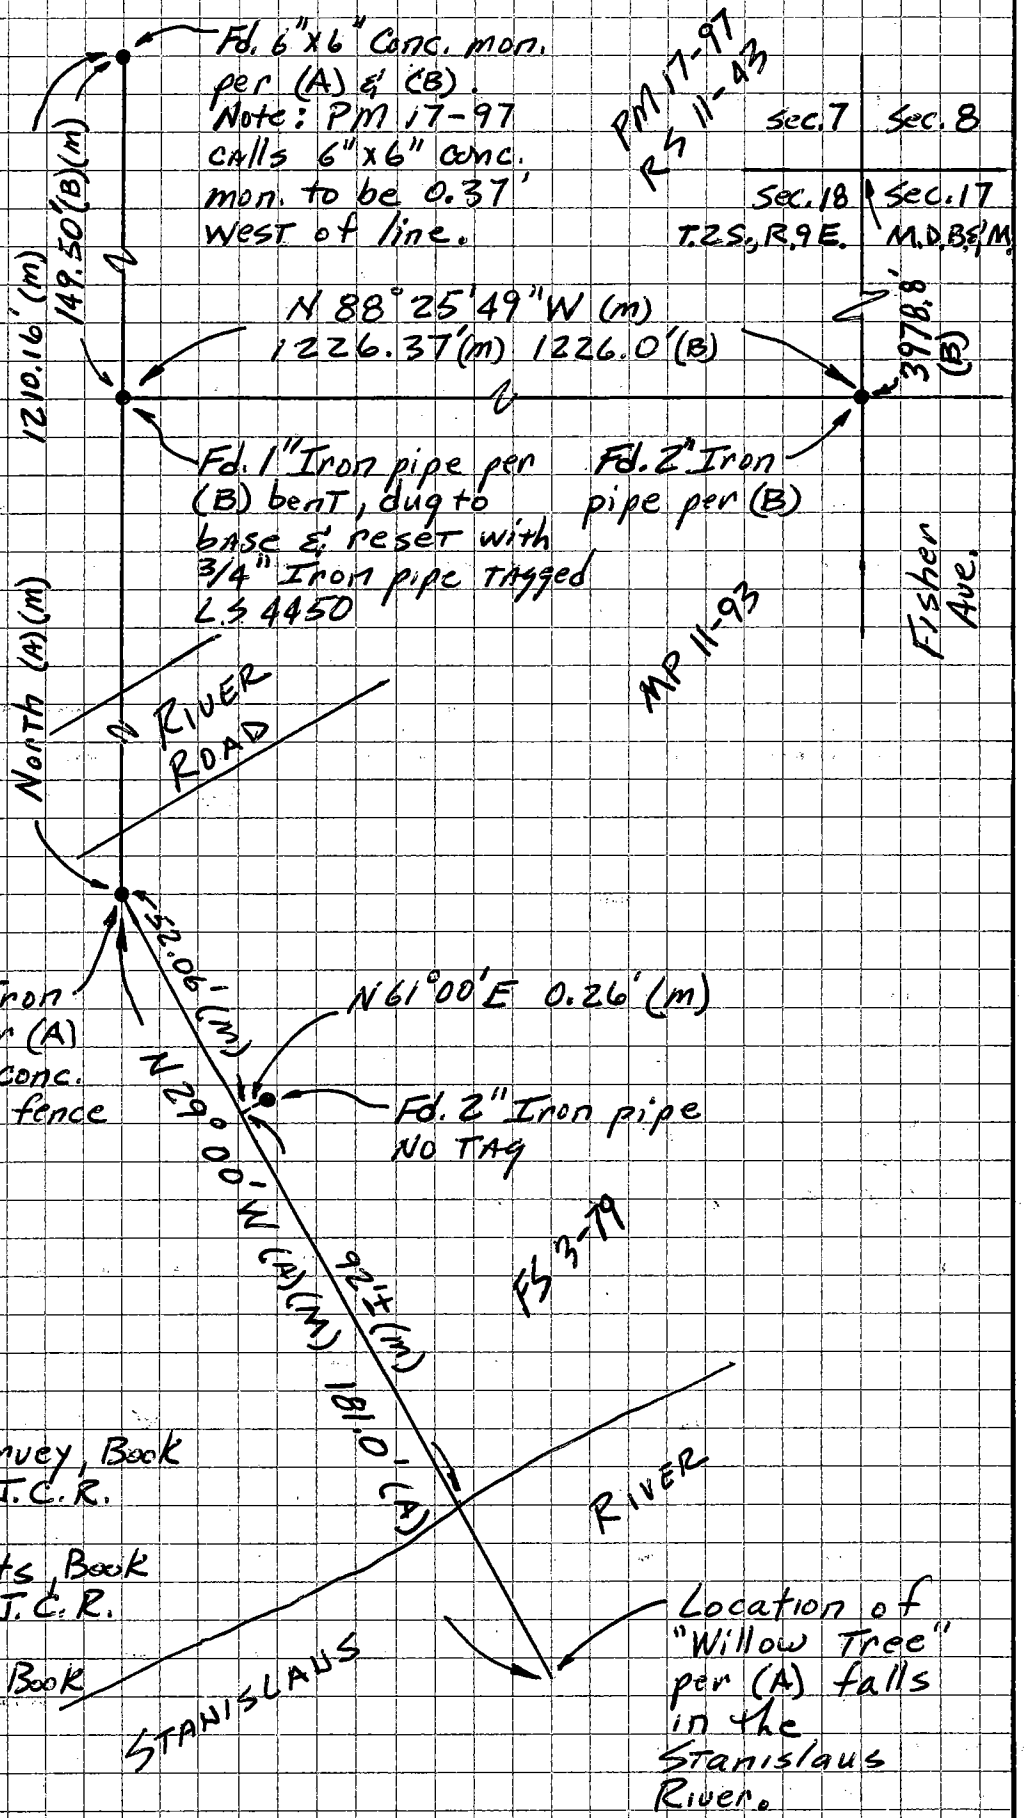 Fd. 6"x6" Conc. mon.
per (A) & (B).
Note: PM 17-97
calls 6"x6" conc.
mon. to be 0.37'
west of line.
PM 17-97
RS 11-43
Sec. 7
Sec. 8
Sec. 18
Sec. 17
T.2S., R.9E.
M.D.B.&M.
149.50'(B)(m)
1210.16'(m)
North (A)(m)
N 88°25'49"W (m)
1226.37'(m) 1226.0'(B)
3978.8'
(B)
Fd. 1" Iron pipe per
(B) bent, dug to
base & reset with
3/4" Iron pipe tagged
L.S 4450
Fd. 2" Iron
pipe per (B)
Fisher
Ave.
MP 11-93
RIVER
ROAD
52.06'(m)
Iron
r (A)
conc.
fence
N 61°00'E 0.26'(m)
Fd. 2" Iron pipe
NO TAG
N 29°00'W (A)(m) 181.0'(A)
92'±(m)
FS 3-79
rvey, Book
J.C.R.
ts, Book
J.C.R.
Book
STANISLAUS
RIVER
Location of
"Willow Tree"
per (A) falls
in the
Stanislaus
River.